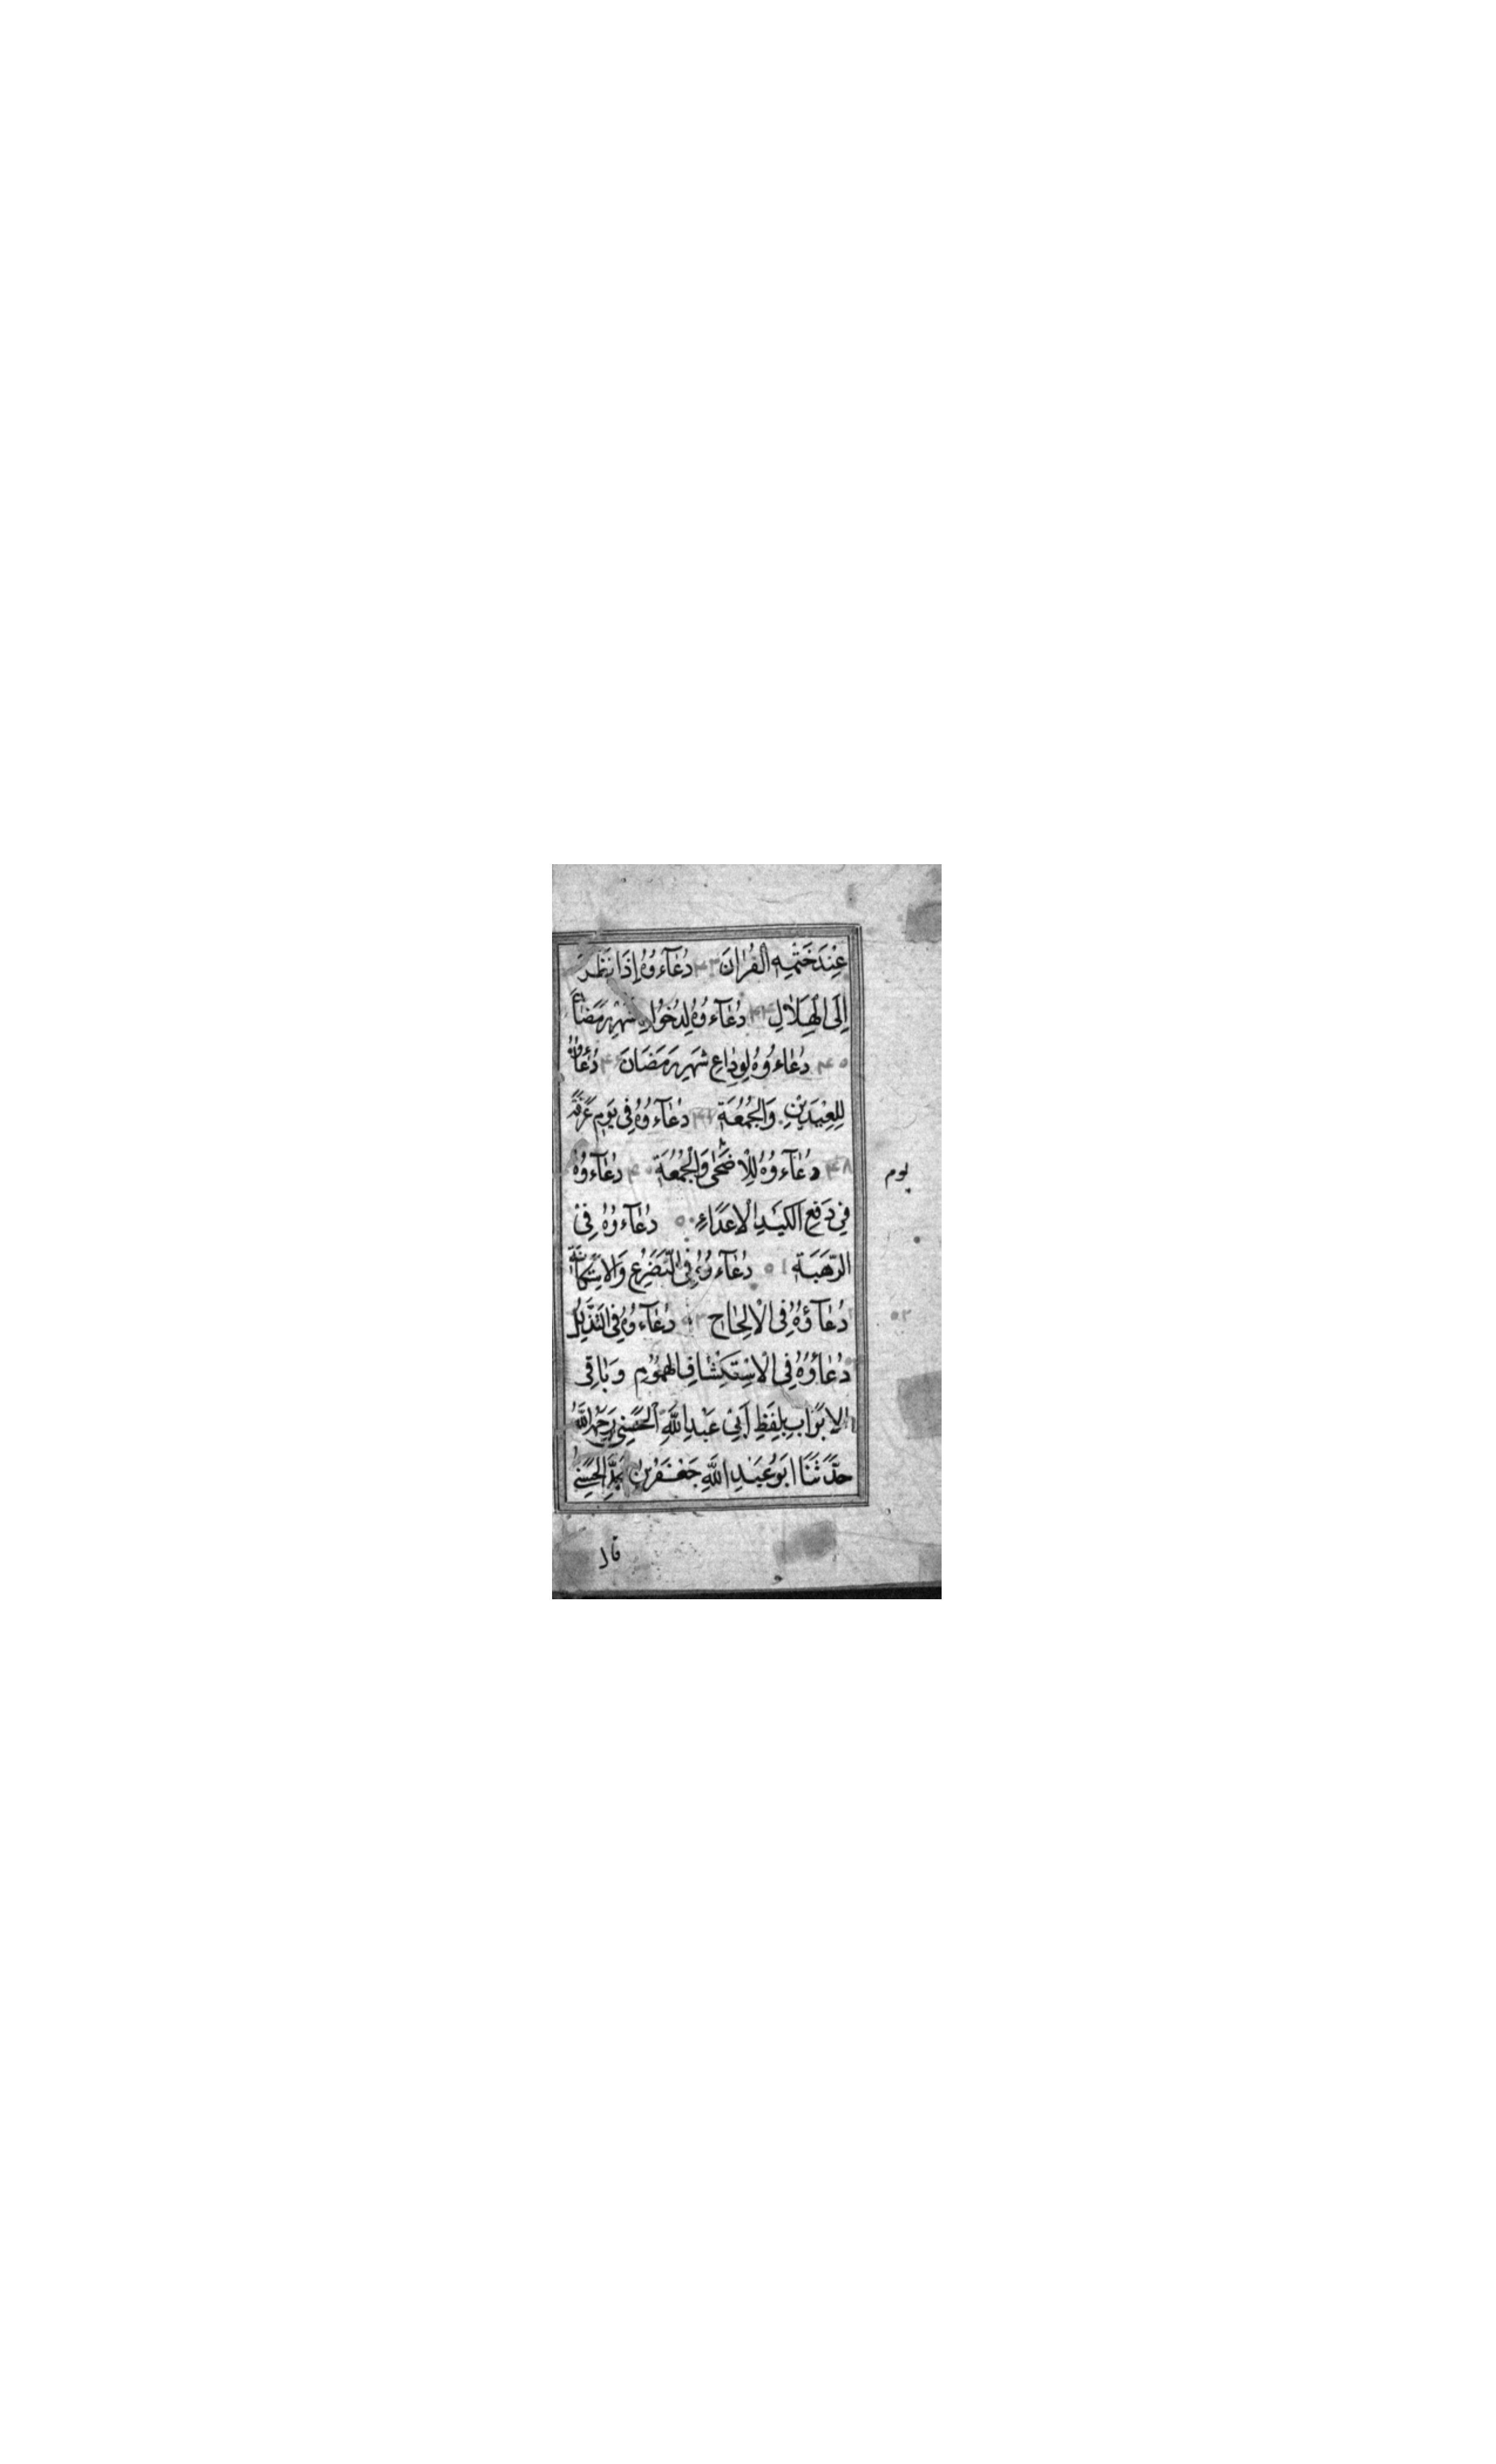 عِنْدَ خَتْمِهِ الْقُرْاٰنَ ۴۳ دُعَآءُوهُ إِذَا نَظَرَ
إِلَى الْهِلَالِ ۴۴ دُعَآءُوهُ لِدُخُولِ شَهْرِ رَمَضَانَ
۴۵ دُعَاءُوهُ لِوِدَاعِ شَهْرِ رَمَضَانَ ۴۶ دُعَاؤُهُ
لِلْعِيْدَيْنِ وَالْجُمُعَةِ ۴۷ دُعَآءُوهُ فِي يَوْمِ عَرَفَةَ
۴۸ دُعَآءُوهُ لِلْاَضْحٰى وَالْجُمُعَةِ دُعَآءُوهُ
يوم
فِي دَفْعِ الْكَيْدِ الْاَعْدَاءِ ۵۰ دُعَآءُوهُ فِي
الرَّهْبَةِ ۵۱ دُعَآءُوهُ فِي التَّضَرُّعِ وَالْاِسْتِكَانَةِ
۵۲
دُعَآؤُهُ فِي الْاِلْحَاحِ ۵۳ دُعَآءُوهُ فِي التَّذَلُّلِ
دُعَاؤُهُ فِي الْاِسْتِكْشَافِ الْهُمُومِ وَبَاقِي
الْاَبْوَابِ بِلَفْظِ اَبِي عَبْدِ اللّٰهِ الْحَسَنِي رَحِمَهُ اللّٰهُ
حَدَّثَنَا اَبُو عَبْدِ اللّٰهِ جَعْفَرُ بْنُ مُحَمَّدٍ الْحَسَنِيُّ
قال